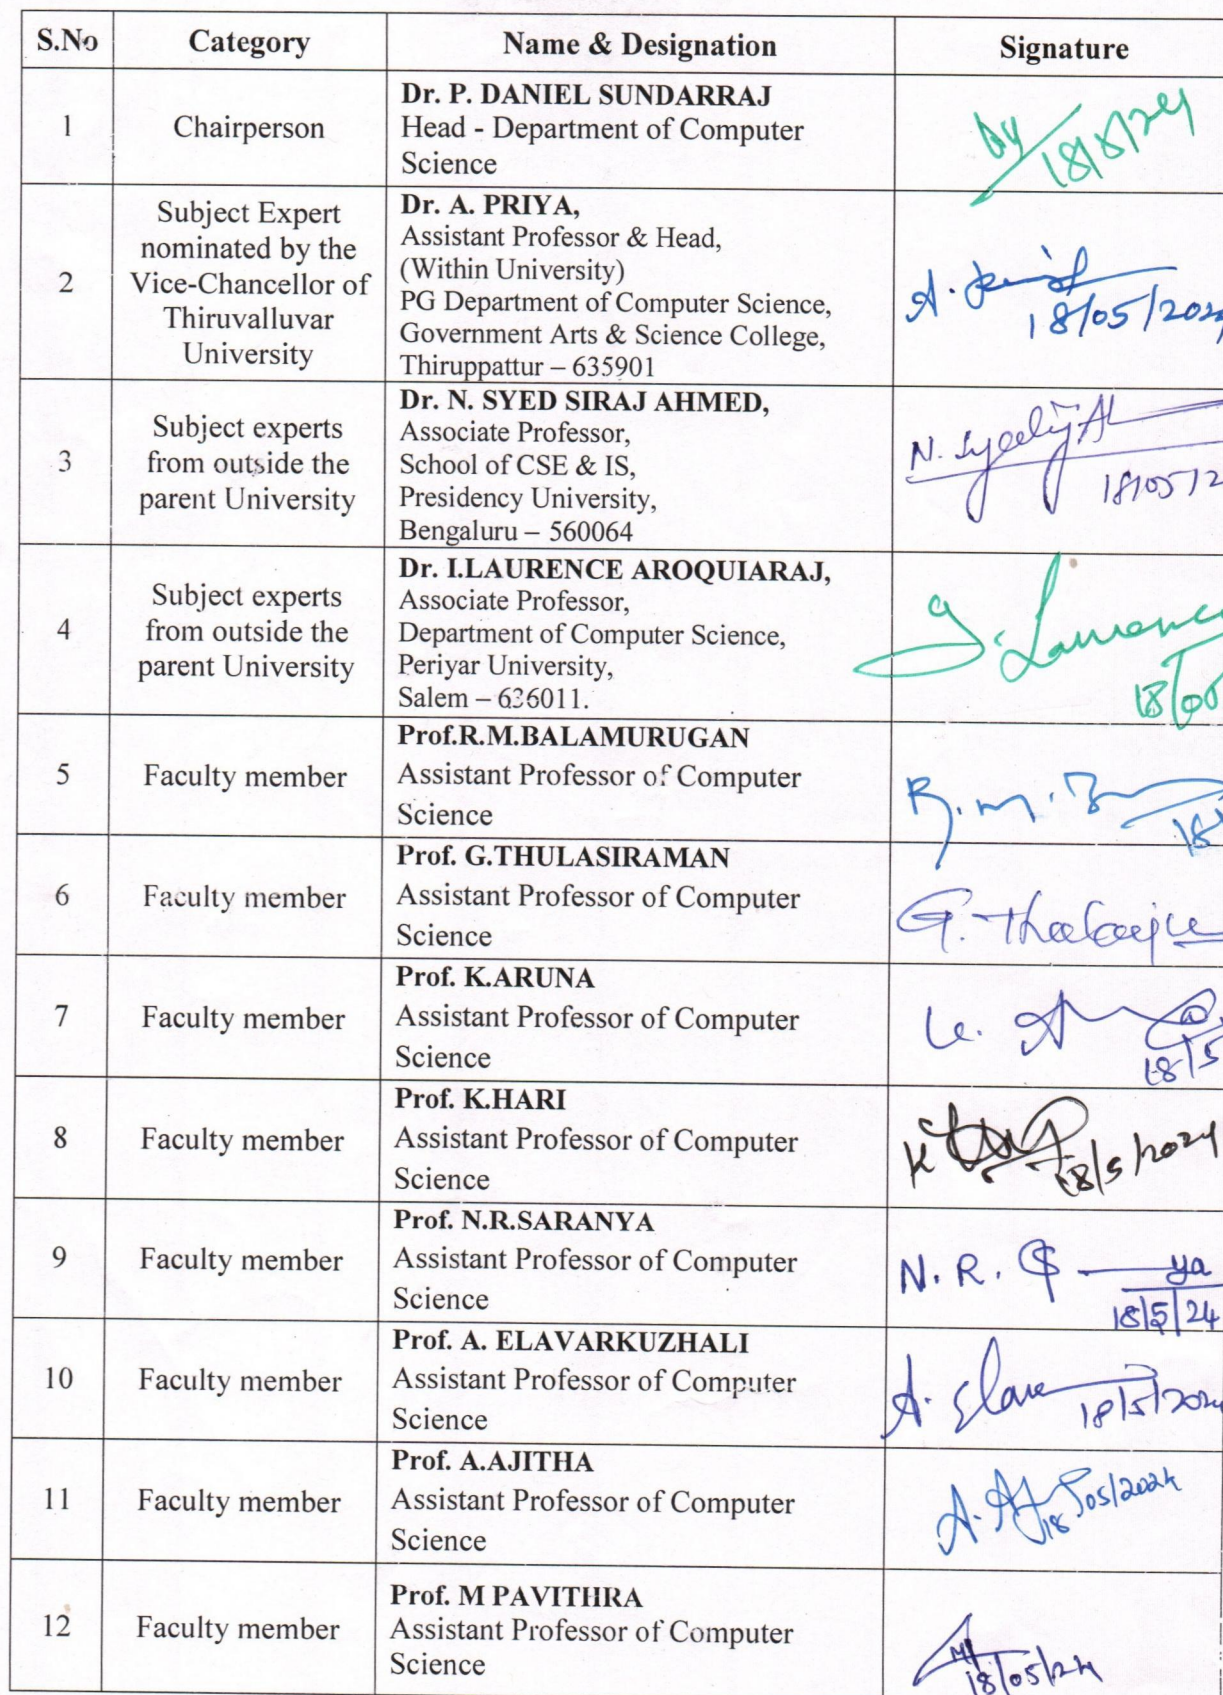 S.No Category Name & Designation Signature
1 Chairperson Dr. P. DANIEL SUNDARRAJ
Head - Department of Computer
Science
18/5/24
2 Subject Expert
nominated by the
Vice-Chancellor of
Thiruvalluvar
University
Dr. A. PRIYA,
Assistant Professor & Head,
(Within University)
PG Department of Computer Science,
Government Arts & Science College,
Thiruppattur – 635901
A.
18/05/2024
3 Subject experts
from outside the
parent University
Dr. N. SYED SIRAJ AHMED,
Associate Professor,
School of CSE & IS,
Presidency University,
Bengaluru – 560064
N. Syed
18/05/2
4 Subject experts
from outside the
parent University
Dr. I.LAURENCE AROQUIARAJ,
Associate Professor,
Department of Computer Science,
Periyar University,
Salem – 636011.
I. Laurence
18/05
5 Faculty member Prof.R.M.BALAMURUGAN
Assistant Professor of Computer
Science
R.M.B
18
6 Faculty member Prof. G.THULASIRAMAN
Assistant Professor of Computer
Science
G.
7 Faculty member Prof. K.ARUNA
Assistant Professor of Computer
Science
K. A
18/5
8 Faculty member Prof. K.HARI
Assistant Professor of Computer
Science
K
18/5/2024
9 Faculty member Prof. N.R.SARANYA
Assistant Professor of Computer
Science
N. R. S ya
18/5/24
10 Faculty member Prof. A. ELAVARKUZHALI
Assistant Professor of Computer
Science
A. Elava
18/5/2024
11 Faculty member Prof. A.AJITHA
Assistant Professor of Computer
Science
A. Aj
18/05/2024
12 Faculty member Prof. M PAVITHRA
Assistant Professor of Computer
Science
18/05/24